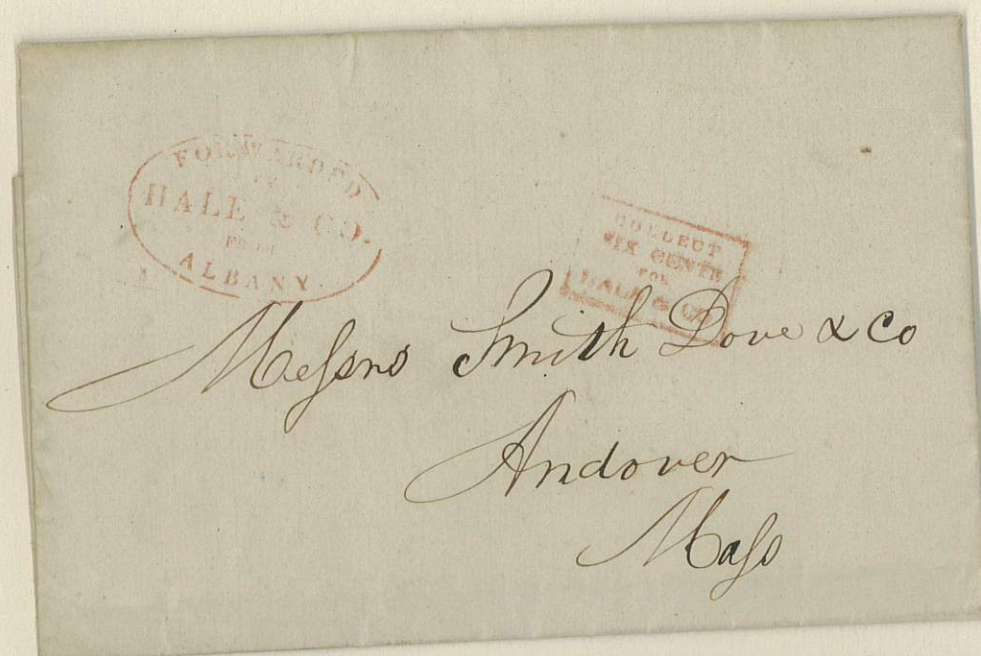 FORWARDED
BY
HALE & CO.
FROM
ALBANY.
COLLECT
SIX CENTS
FOR
HALE & CO.
Meſsrs Smith Dove & Co
Andover
Maſs